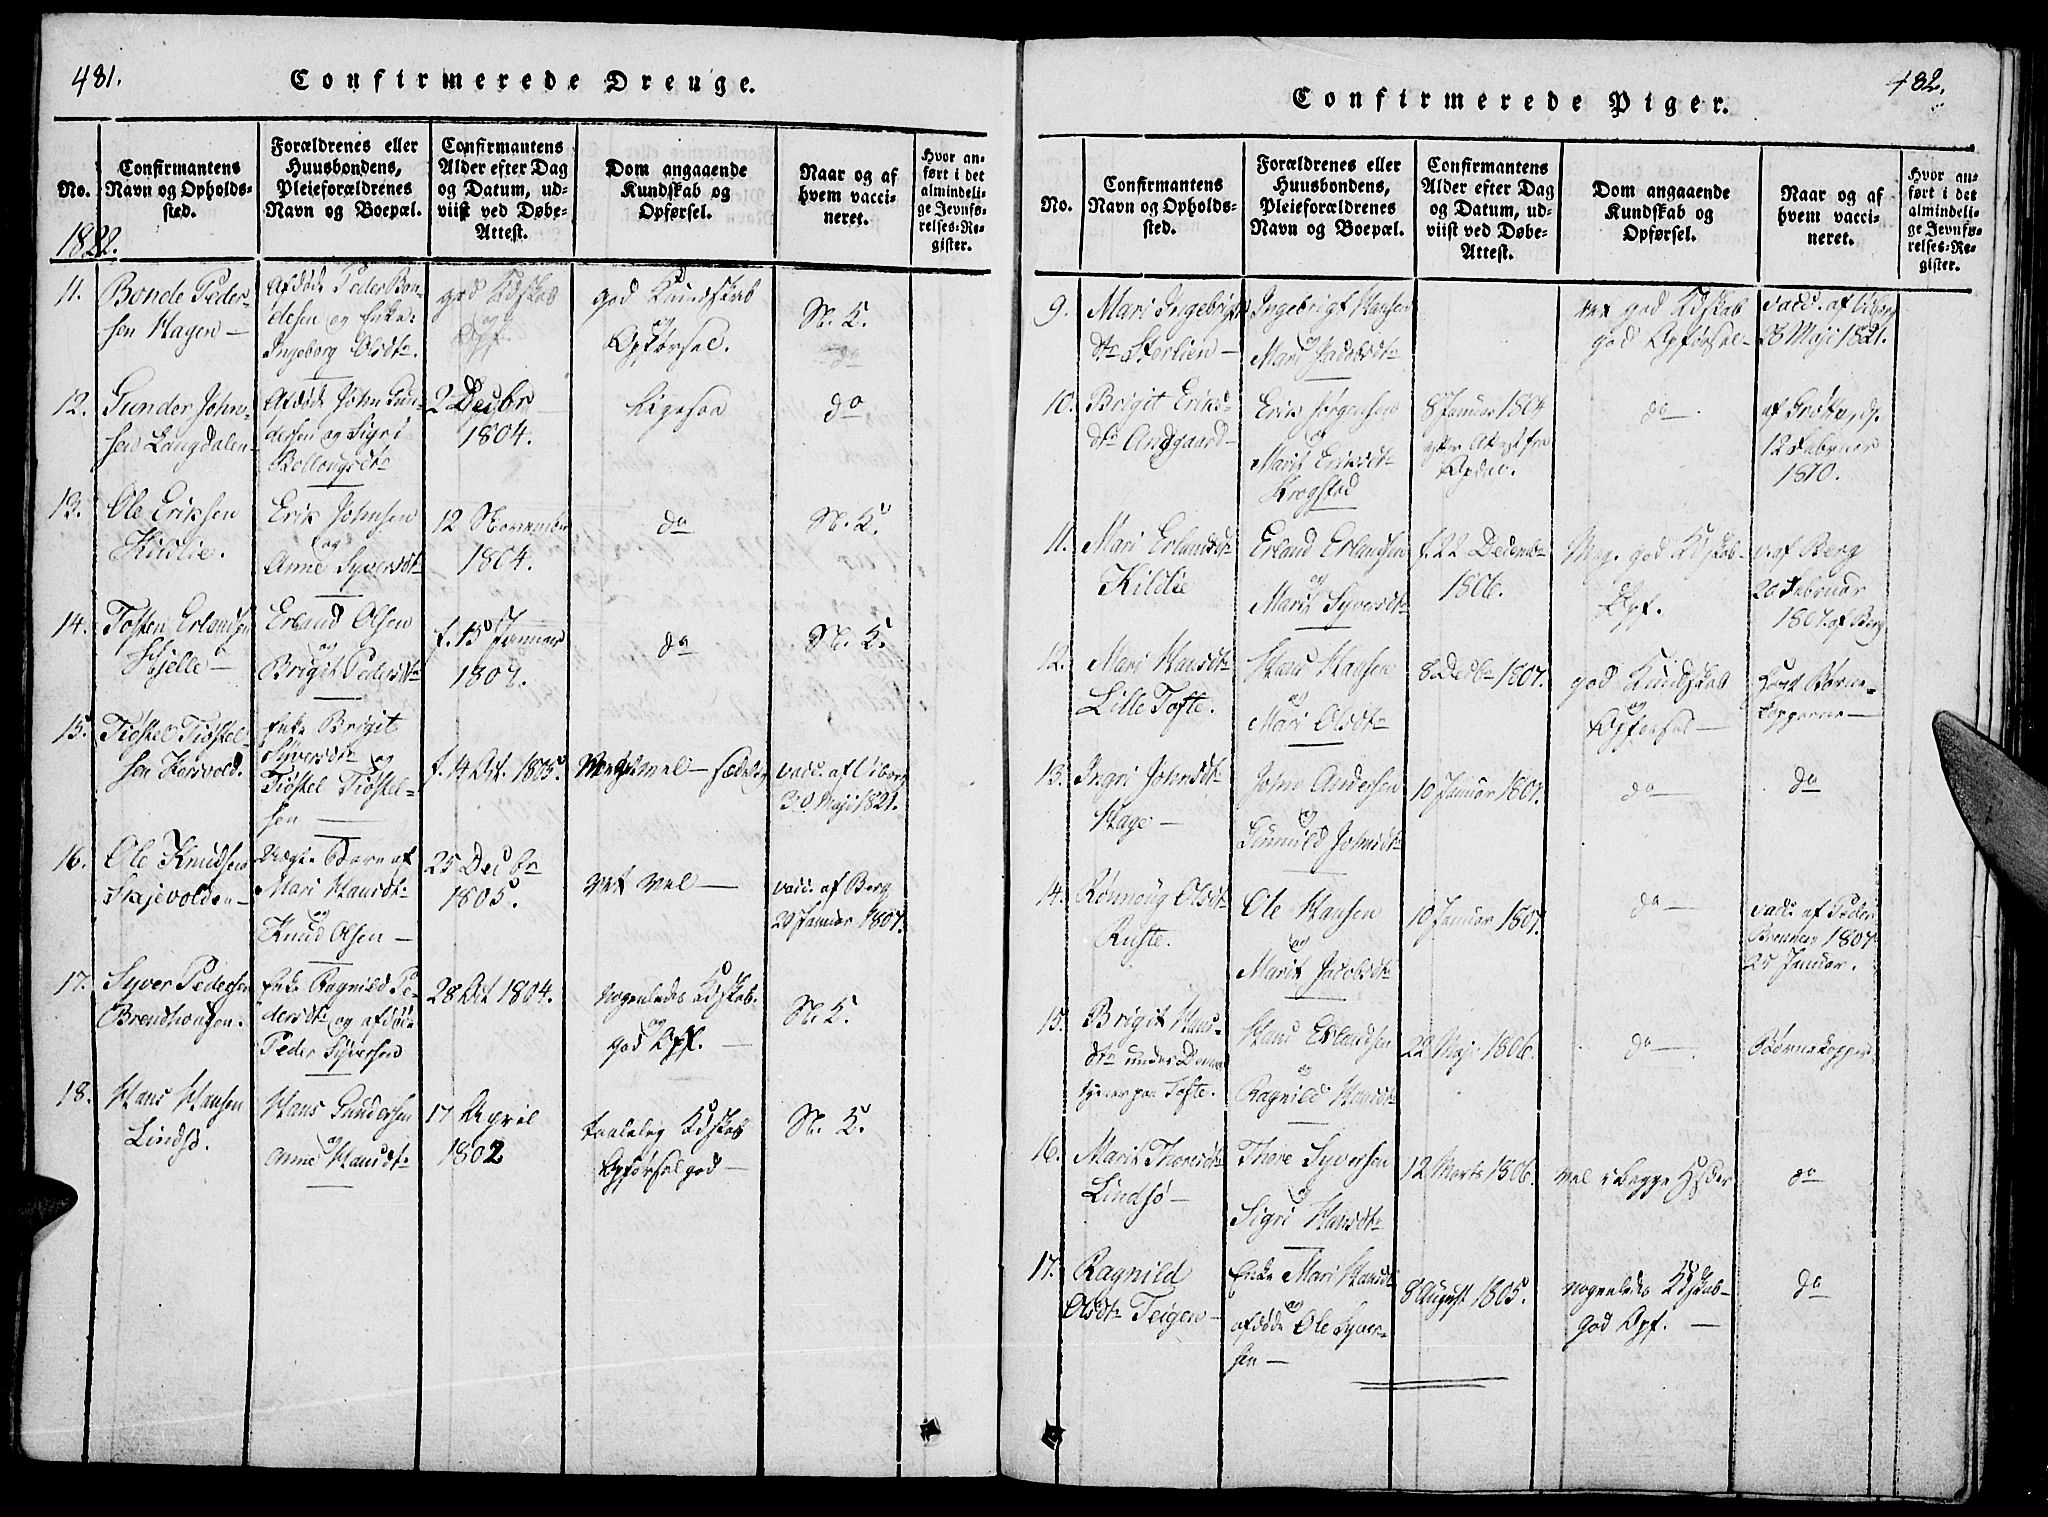 481.
Confirmerede Drenge.
No.
Confirmantens
Navn og Opholds-
sted.
Forældrenes eller
Huusbondens,
Pleieforældrenes
Navn og Boepæl.
Confirmantens
Alder efter Dag
og Datum, ud-
viist ved Døbe-
Attest.
Dom angaaende
Kundskab og
Opførsel.
Naar og af
hvem vacci-
neret.
Hvor an-
ført i det
almindeli-
ge Jevnfø-
relses-Re-
gister.
1822.
11.
Bonde Peder-
sen Hagen —
Afdøde Peder Bon-
desen og Enke
Ingeborg Olsdtr.
god Kdskab
og
Opf.
god Kundskab
og
Opførsel.
N. K.
do
12.
Gunder John-
sen Langdalen
Afdøde John Gun-
dersen og Sigri
2 Decbr
1804.
Ligesaa
do
13.
Ole Eriksen
Kidlie.
Erik Johnsen
og
Anne Syversdtr
12 November
1804.
do
N. K.
14.
Tosten Erlandsen
Sjelle —
Erland Olsen
og
Brigit Pedersdtr
f. 13 Januar
1807.
do
N. K.
15.
Tiøstel Tiøstel-
sen
Enke Brigit
Syversdtr og
Tiøstel Tiøstel-
sen —
f. 14 Oct. 1805.
Meget vel — sædelig
vacc. af Viborg
30 Maji 1821.
16.
Ole Knudsen
Skjevolden —
Uægte Barn af
Mari Hansdtr
og
Knud Olsen —
25 Decbr
1805.
ret vel —
vacc. af Berg
29 Januar 1807.
17.
Syver Pedersen
Brendhaugen.
Enke Ragnild Pe-
dersdtr og afdøde
Peder Syversen
28 Oct 1804.
nogenledes Kdskab.
og
god Opf. —
N. K.
18.
Hans Hansen
Lindsø.
Hans Gundersen
og
Anne Hansdtr
17 April
1802
taalelig Kdskab
Opførsel god —
N. K.
482.
Confirmerede Piger.
No.
Confirmantens
Navn og Opholds-
sted.
Forældrenes eller
Huusbondens,
Pleieforældrenes
Navn og Boepæl.
Confirmantens
Alder efter Dag
og Datum, ud-
viist ved Døbe-
Attest.
Dom angaaende
Kundskab og
Opførsel.
Naar og af
hvem vacci-
neret.
Hvor an-
ført i det
almindeli-
ge Jevnfø-
relses-Re-
gister.
9.
Mari Ingebrigts-
dtr Storlien —
Ingebrigt Hansen
og
Mari Jacobsdtr
ret god Kdskab
god Opførsel —
vacc. af Viborg
28 Maji 1821.
10.
Brigit Eriks-
dtr Andgaard —
Erik Jørgensen
og
Marit Eriksdtr
Krogstad
8 Januar 1804
efter Attest fra
Opdal.
do —
af
12 Februar
1810.
11.
Mari Erlandsdtr
Kidlie
Erland Erlandsen
og
Marit Syversdtr
f. 22 Decemb.
1806.
Meg. god Kdskab —
Opf.
v. af Berg
20 Februar
1807 af Berg
12.
Mari Hansdtr
Lille Tofte.
Hans Hansen
og
Mari Olsdtr
8 Decbr 1807.
god Kundskab
og
Opførsel —
havt Børne-
kopperne —
13.
Ingri Johnsdtr
Hage —
John Andersen
og
Gunnild Johnsdtr
10 Januar 1807.
do —
do
14.
Rønnoug Olsdtr
Ruste.
Ole Hansen
og
Marit Jacobsdtr
10 Januar 1807.
do —
vacc. af Peder
1807
25 Januar.
15.
Brigit Hans-
dtr under
tjener paa Tofte.
Hans Erlandsen
og
Ragnild Hansdtr
22 Maji 1806.
do —
Børnekopper
16.
Marit Thoresdtr
Lindsø —
Thore Syversen
og
Sigri Hansdtr
12 Marts 1806.
vel i begge Hs:der
do
17.
Ragnild
Olsdtr Teigen —
Enke Mari Hansdtr
og
afdøde Ole Syver-
sen —
8 August 1805.
nogenledes Kdskab —
god Opf. —
do